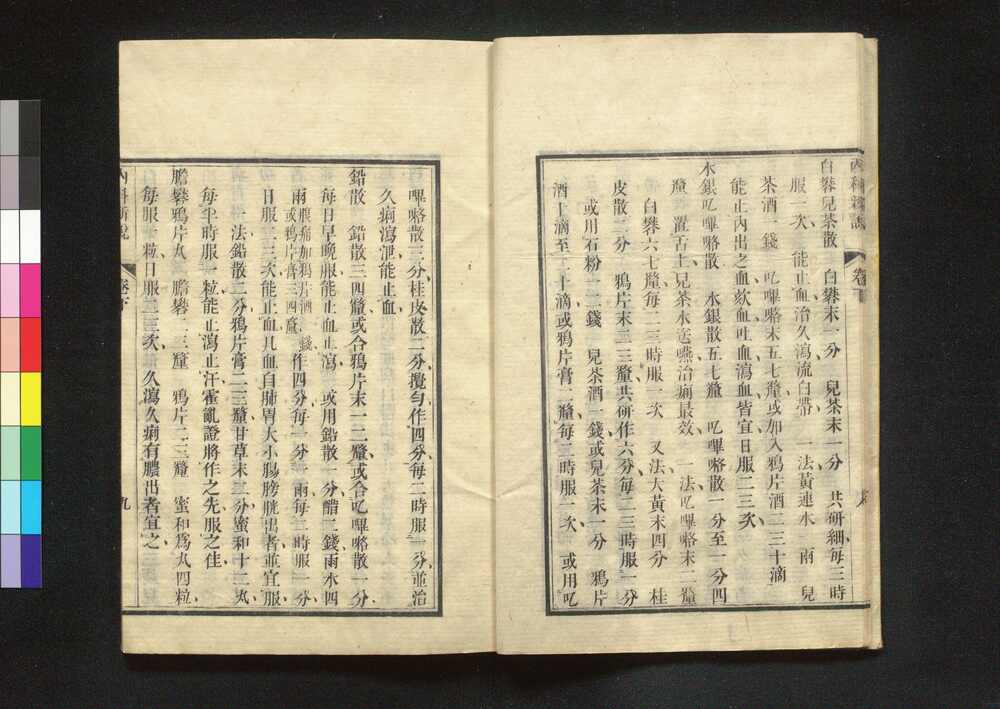 內科新說
卷下
白礬兒茶散 白礬末一分 兒茶末一分 共研細每三時
服一次 能止血治久瀉流白帶 一法黃連水一兩 兒
茶酒一錢 吃嗶咯末五七釐或加入鴉片酒二三十滴
能止內出之血欬血吐血瀉血皆宜日服二三次
水銀吃嗶咯散 水銀散五七釐 吃嗶咯散一分至一分四
釐 置舌上兒茶水送嚥治痢最效 一法吃嗶咯末二釐
白礬六七釐每二三時服一次 又法大黃末四分 桂
皮散二分 鴉片末二三釐共研作六分每二三時服一分
或用石粉一二錢 兒茶酒一錢或兒茶末一分 鴉片
酒十滴至二十滴或鴉片膏一釐每三時服一次 或用吃
嗶咯散三分桂皮散二分攪勻作四分每二時服一分並治
久痢瀉泄能止血
鉛散 鉛散三四釐或合鴉片末一二釐或合吃嗶咯散一分
每日早晚服能止血止瀉 或用鉛散一分醋二錢雨水四
兩腹痛加鴉片酒一錢
或鴉片膏三四釐作四分每一分一兩每二時服一分
日服二三次能止血凡血自肺胃大小腸膀胱出者並宜服
一法鉛散二分鴉片膏二三釐甘草末三分蜜和十二丸
每半時服一粒能止瀉止汗霍亂證將作之先服之佳
膽礬鴉片丸 膽礬二三釐 鴉片二三釐 蜜和爲丸四粒
每服一粒日服二三次 久瀉久痢有膿出者宜之
內科新說
卷下
九